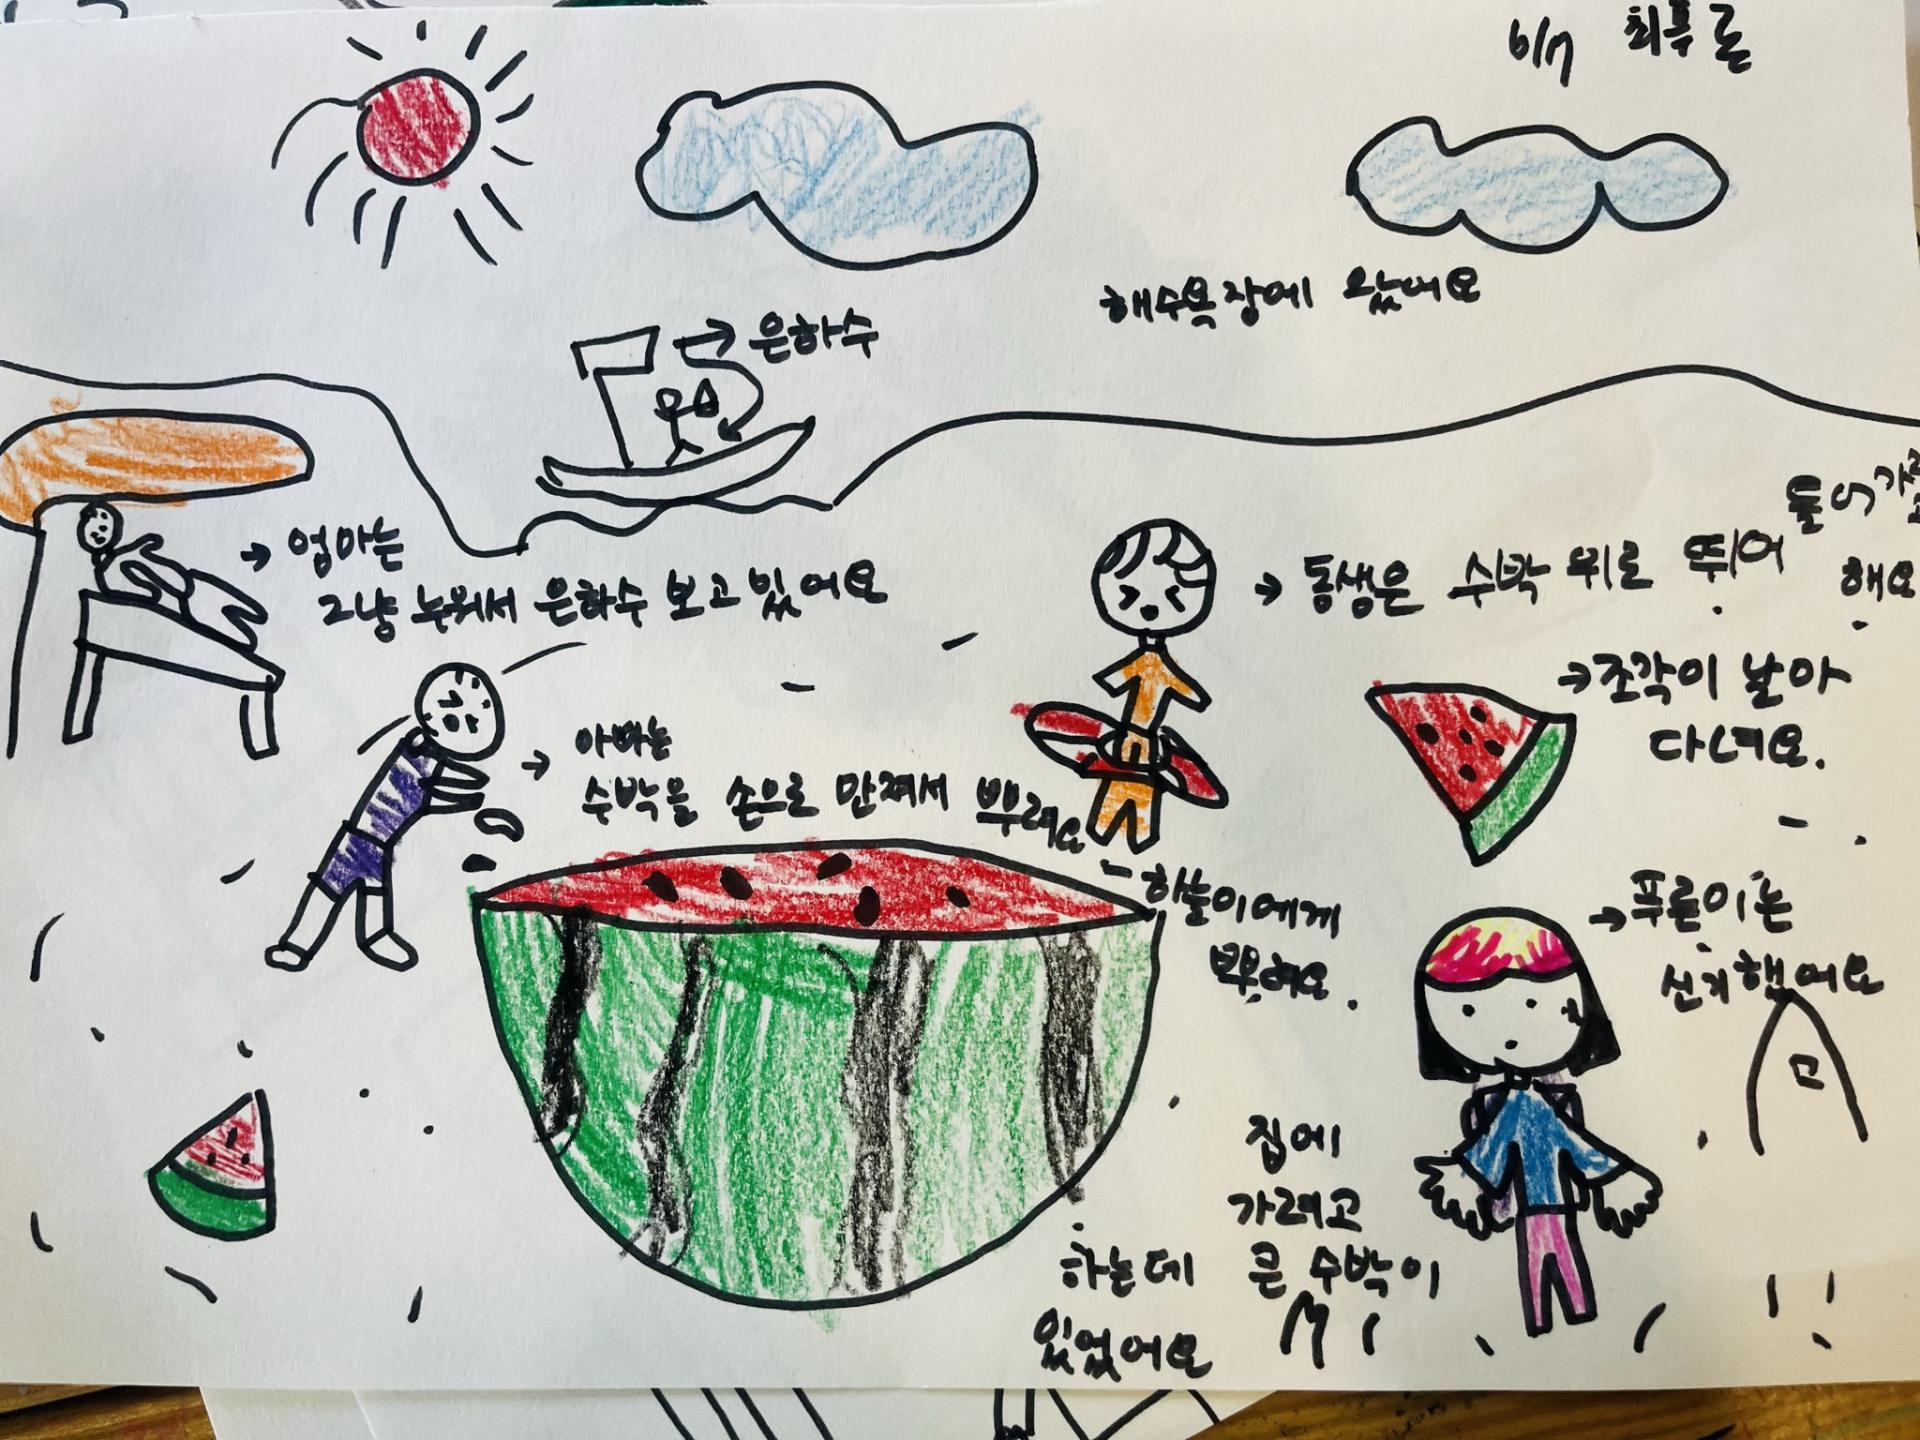 6/17 최푸른
해수욕장에 왔어요
→ 은하수
→ 엄마는
그냥 누워서 은하수 보고 있어요
→ 동생은 수박 위로 뛰어
들어가려
해요
→ 조각이 날아
다녀요.
→ 아빠는
수박을 손으로 만져서 뿌려요
하늘이에게
뿌려요.
→ 푸른이는
신기했어요
집에
가려고
하는데 큰 수박이
있었어요